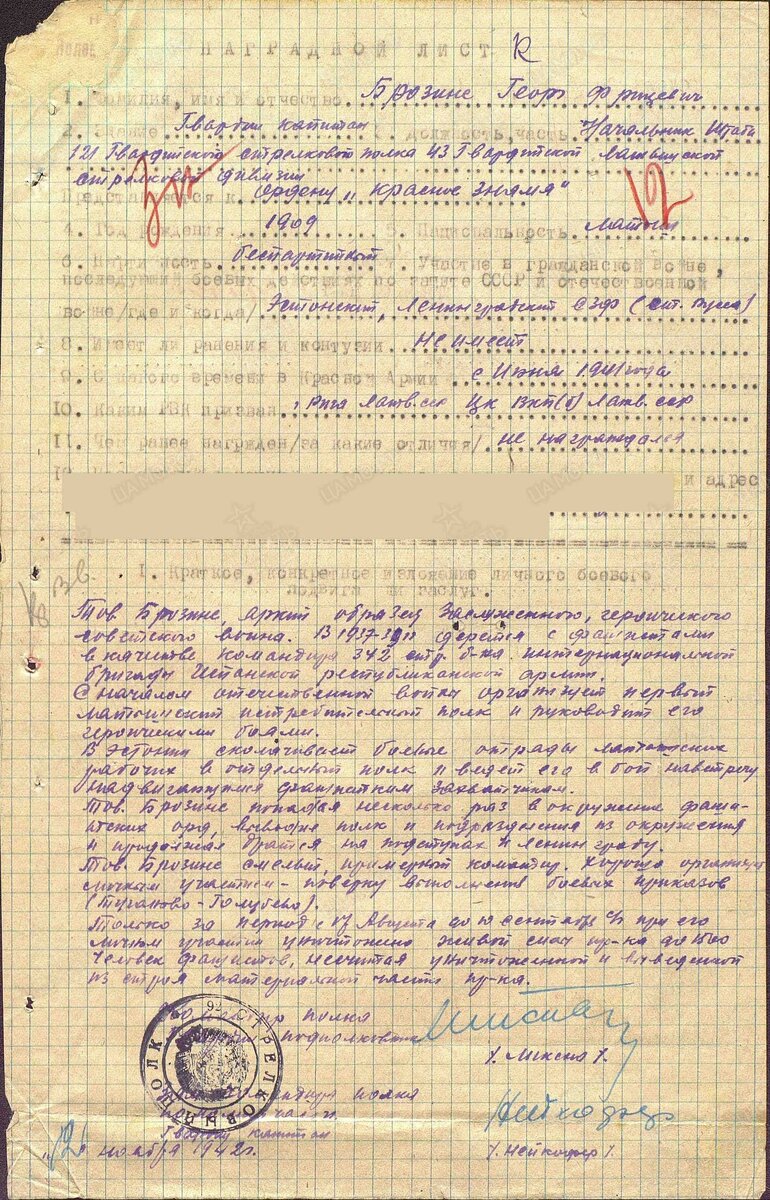 НАГРАДНОЙ ЛИСТ
1. Фамилия, имя и отчество Брозинс Георг Фрицевич
2. Звание Гвардии капитан 3. Должность, часть Начальник Штаба
121 Гвардейской стрелковой полка 43 Гвардейской Латышской
стрелковой дивизии
Представляется к ордену "Красное Знамя"
4. Год рождения 1909 5. Национальность латыш
6. Партийность беспартийный 7. Участие в гражданской войне,
последующих боевых действиях по защите СССР и отечественной
войне/где и когда/ Эстонский, Ленинградский СЗФ (Ст. Русса)
8. Имеет ли ранения и контузии Не имеет
9. С какого времени в Красной Армии с Июня 1941 года
10. Каким РВК призван г Рига Латв. сср Цк Вкп(б) Латв. сср
11. Чем ранее награжден/за какие отличия/ не награждался
12
и адрес
1. Краткое, конкретное изложение личного боевого
подвига или заслуг.
Тов. Брозинс, яркий образец заслуженного, героического
советского воина. В 1937-39 дерется с фашистами
в качестве командира 342 стр. б-на интернациональной
бригады Испанской республиканской армии.
С началом отечественной войны организует первый
латышский истребительный полк и руководит его
героическими боями.
В Эстонии сколачивает боевые отряды латышских
рабочих в отдельный полк и ведет его в бой навстречу
надвигающимся фашистким захватчикам.
Тов. Брозинс попадая несколько раз в окружение фаши-
стских орд, выводив полк и подразделения из окружения
и продолжая братся на подступах к Ленинграду.
Тов. Брозинс смелый, примерный командир. Хорошо организует
личным участием - поверку выполнения боевых приказов
(Туганово-Голубово).
Только за период с Августа до 10 сентября при его
личным участии уничтожено живой силы пр-ка до 1500
человек фашистов, несчитая уничтоженной и выведенной
из строя материальной части пр-ка.
Командир полка
подполковник
/. Миксна /.
командира полка
части
Гвардии капитан
/. Нейкофер /.
ноября 1942 г.
СТРЕЛКОВЫЙ ПОЛК